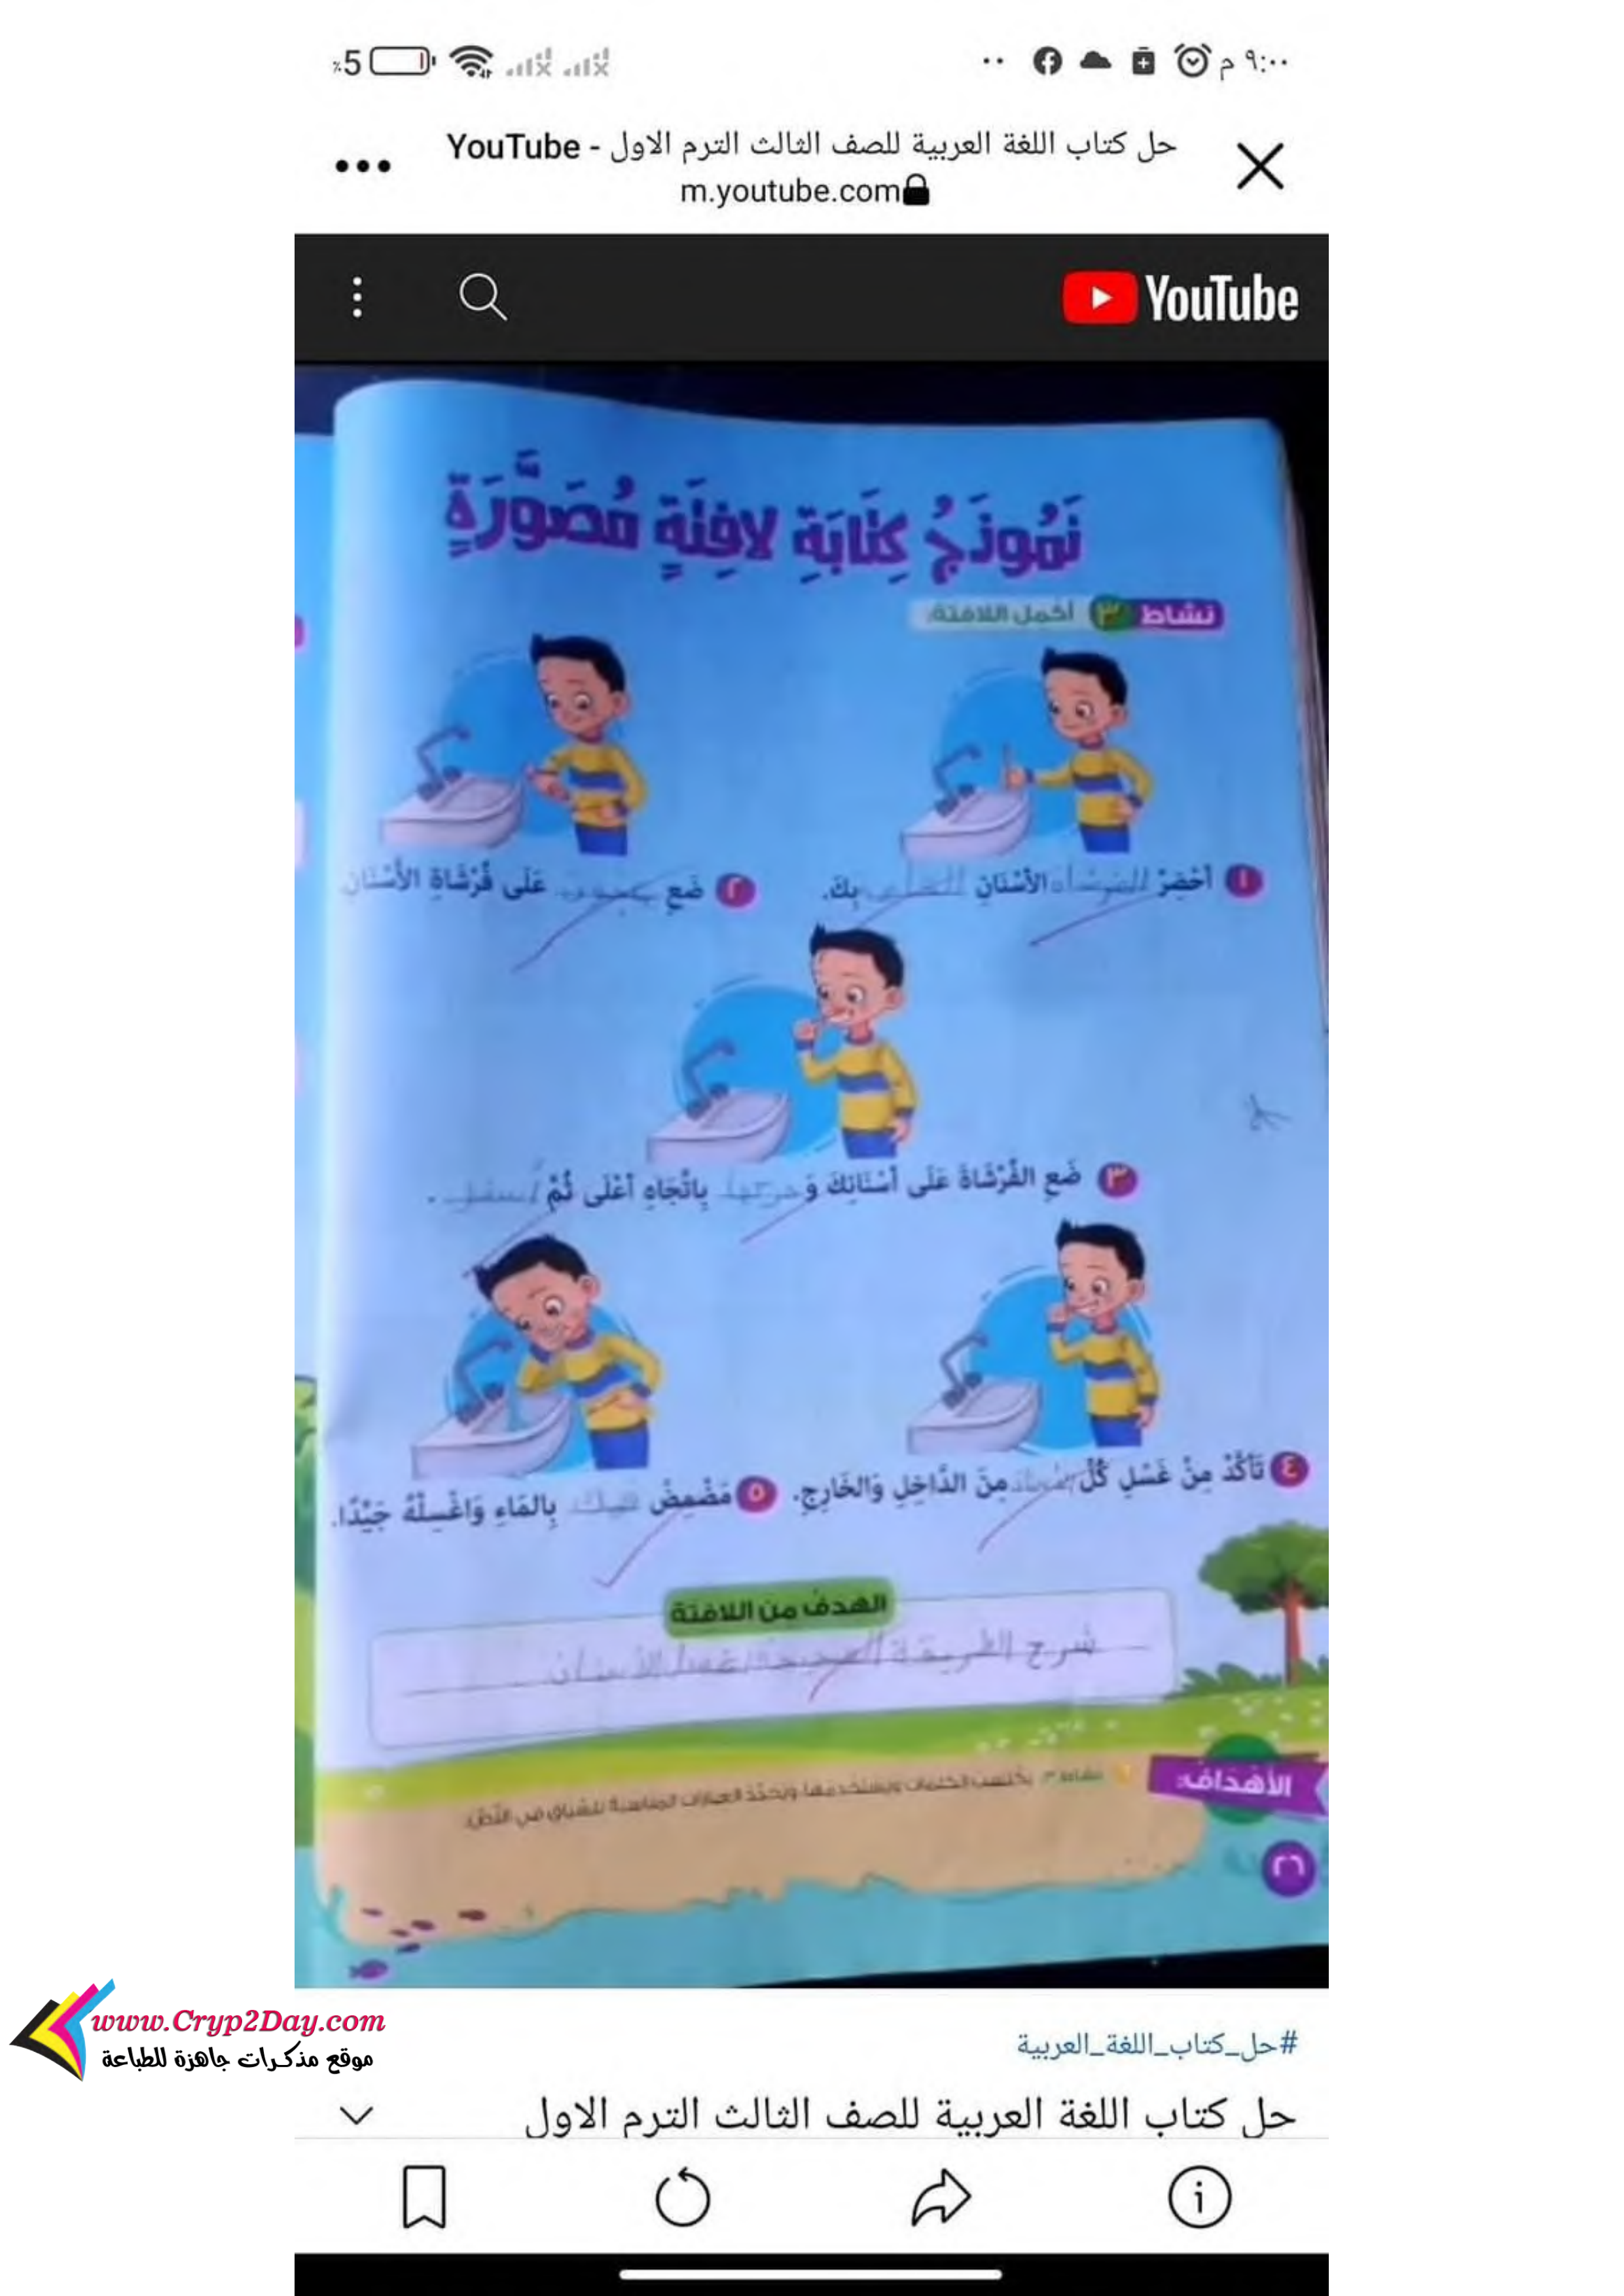 %5
٩:٠٠ م
حل كتاب اللغة العربية للصف الثالث الترم الاول - YouTube
m.youtube.com
YouTube
نَمُوذَجُ كِتَابَةِ لافِتَةٍ مُصَوَّرَةٍ
نشاط ٣ أكمل اللافتة:
١ أَحْضِرْ الفرشاه الأسْنَانِ الخاص بِكَ.
٢ ضَعِ معجون عَلَى فُرْشَاةِ الأَسْنَانِ.
٣ ضَعِ الفُرْشَاةَ عَلَى أَسْنَانِكَ وَ حركها بِاتِّجَاهِ أَعْلَى ثُمَّ أسفل .
٤ تَأَكَّدْ مِنْ غَسْلِ كُلِّ مِنَ الدَّاخِلِ وَالخَارِجِ.
٥ مَضْمِضْ فمك بِالمَاءِ وَاغْسِلْهُ جَيِّدًا.
الهدف من اللافتة
شرح الطريقة الصحيحة لغسل الأسنان
الأهداف:
نشاط ٣: يكتسب الكلمات ويستخدمها، ويحدد العبارات المناسبة للسياق في النص.
٢٦
www.Cryp2Day.com
موقع مذكرات جاهزة للطباعة
#حل_كتاب_اللغة_العربية
حل كتاب اللغة العربية للصف الثالث الترم الاول